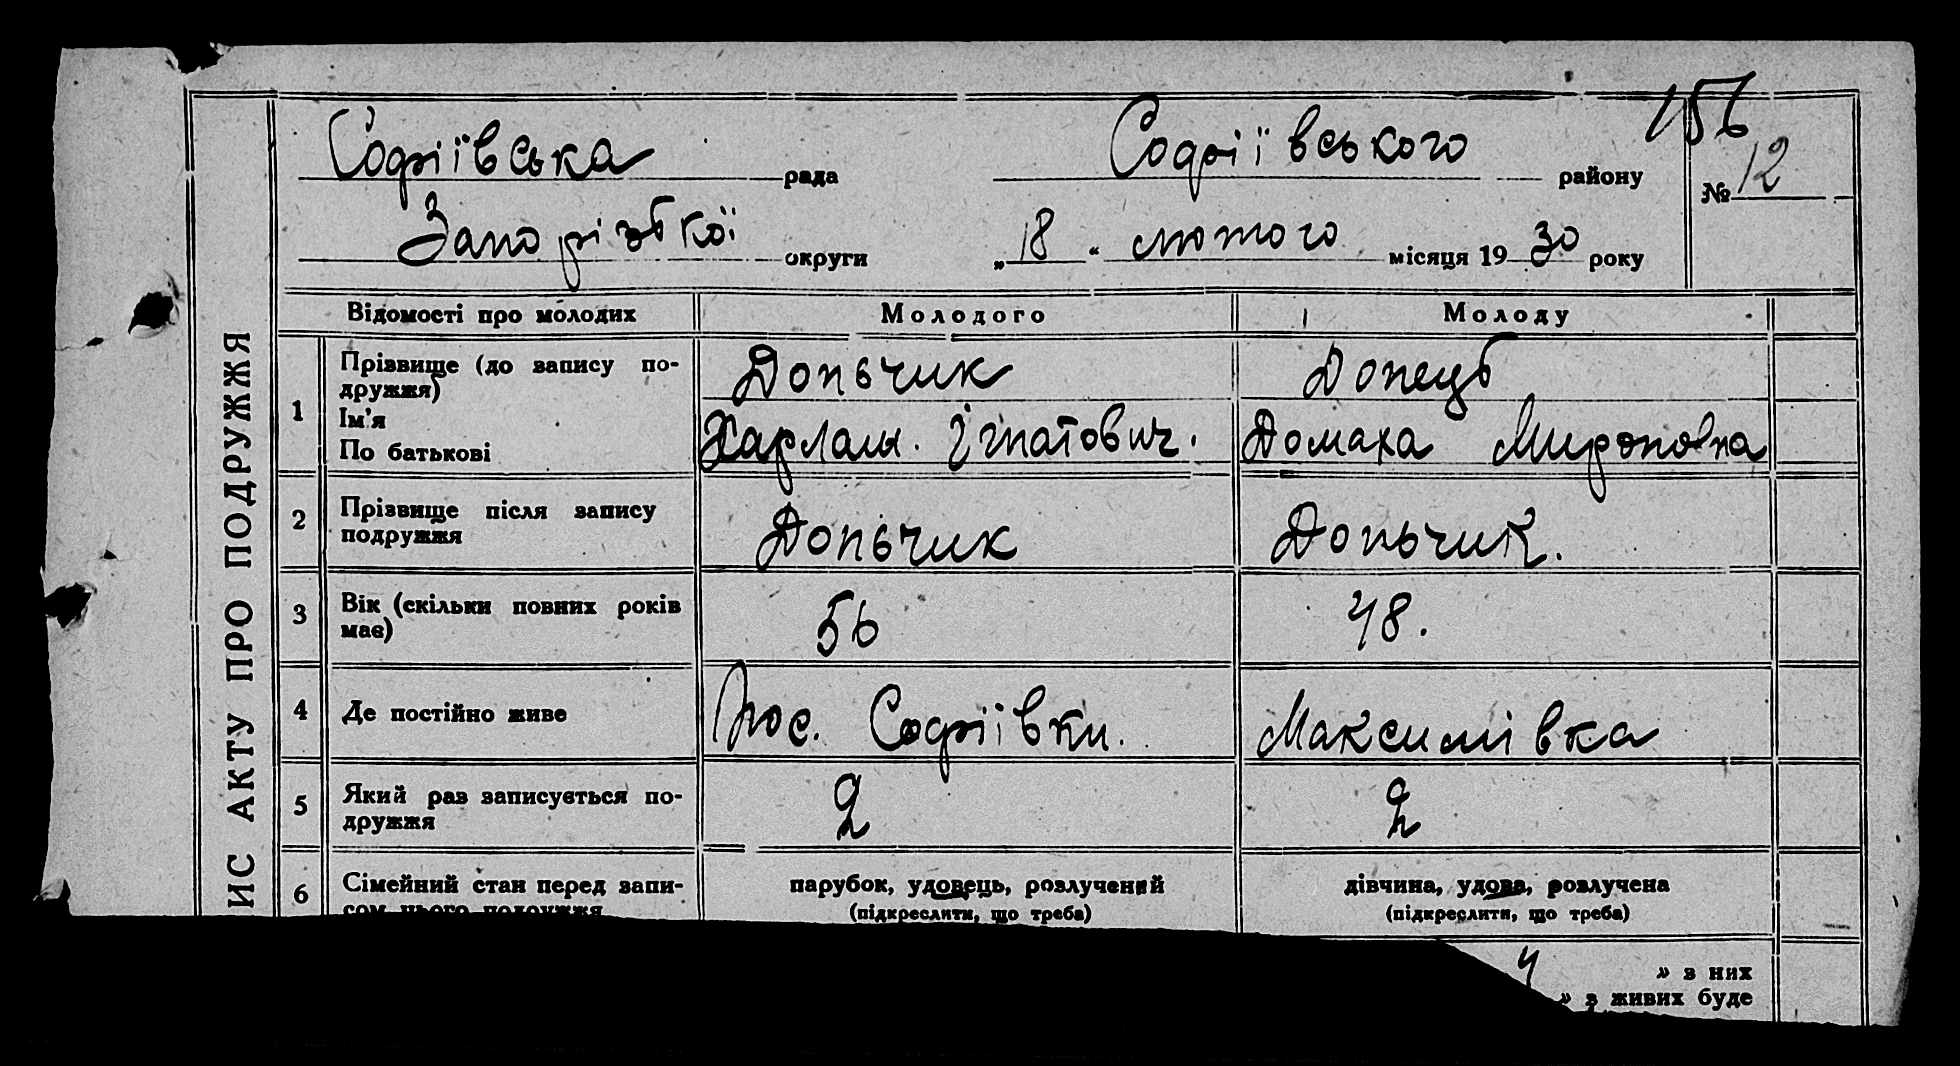 156
Софіївська рада Софіївського району № 12
Запорізької округи „18“ лютого місяця 1930 року
Відомості про молодих Молодого Молоду
1 Прізвище (до запису по-дружжя) Допьчик Донець
Ім'я
По батькові Харлам. Ігнатович. Домаха Мироновна
2 Прізвище після запису подружжя Допьчик Допьчик.
3 Вік (скільки повних років має) 56 48.
4 Де постійно живе пос. Софіївки. Максимівка
5 Який раз записується по-дружжя 2 2
6 Сімейний стан перед запи-сом цього подружжя парубок, удовець, розлучений дівчина, удова, розлучена
(підкреслити, що треба) (підкреслити, що треба)
» з них
» з живих буде
ИС АКТУ ПРО ПОДРУЖЖЯ